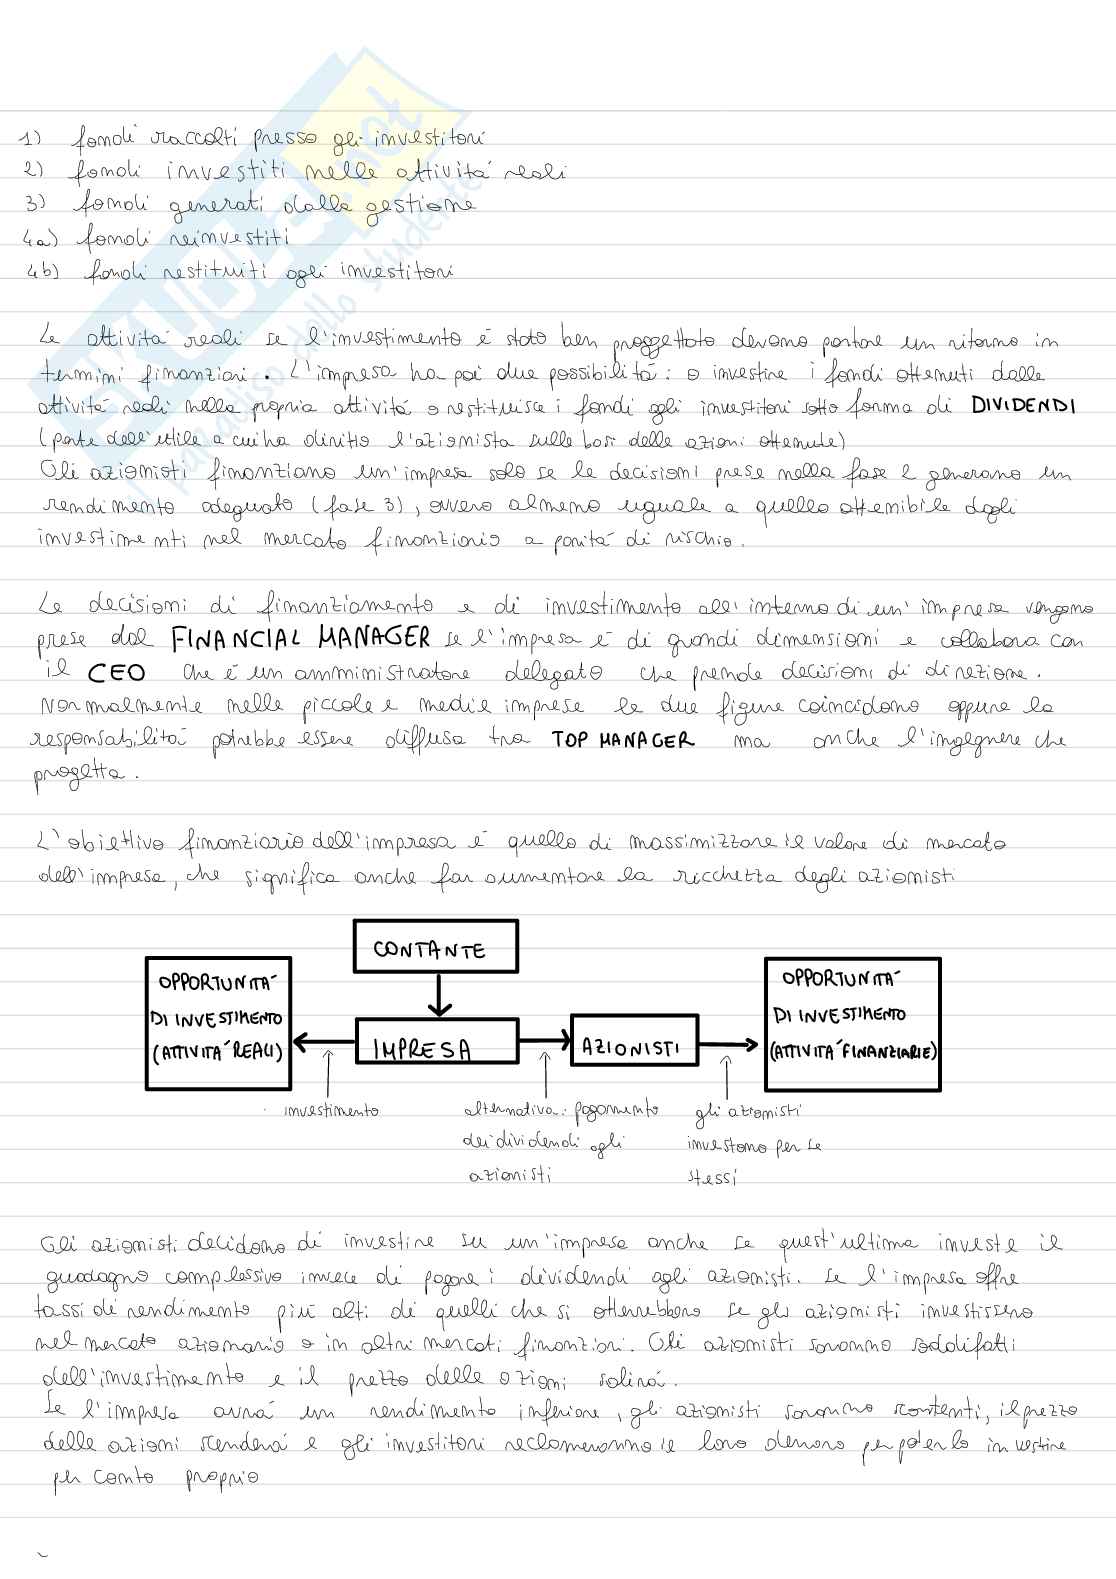 1) fondi raccolti presso gli investitori
2) fondi investiti nelle attività reali
3) fondi generati dalla gestione
4a) fondi reinvestiti
4b) fondi restituiti agli investitori
Le attività reali se l'investimento è stato ben proggettato devono portare un ritorno in
termini finanziari. L'impresa ha poi due possibilità: o investire i fondi ottenuti dalle
attività reali nella propria attività o restituisce i fondi agli investitori sotto forma di DIVIDENDI
(parte dell'utile a cui ha diritto l'azionista sulle basi delle azioni ottenute)
Gli azionisti finanziano un'impresa solo se le decisioni prese nella fase 2 generano un
rendimento adeguato (fase 3), ovvero almeno uguale a quello ottenibile dagli
investimenti nel mercato finanziario a parità di rischio.
Le decisioni di finanziamento e di investimento all'interno di un'impresa vengono
prese dal FINANCIAL MANAGER se l'impresa è di grandi dimensioni e collabora con
il CEO che è un amministratore delegato che prende decisioni di direzione.
Normalmente nelle piccole e medie imprese le due figure coincidono oppure la
responsabilità potrebbe essere diffusa tra TOP MANAGER ma anche l'ingegnere che
progetta.
L'obiettivo finanziario dell'impresa è quello di massimizzare il valore di mercato
dell'impresa, che significa anche far aumentare la ricchezza degli azionisti
CONTANTE
OPPORTUNITÀ
DI INVESTIMENTO
(ATTIVITÀ REALI)
IMPRESA
AZIONISTI
OPPORTUNITÀ
DI INVESTIMENTO
(ATTIVITÀ FINANZIARIE)
investimento
alternativa: pagamento
dei dividendi agli
azionisti
gli azionisti
investono per se
stessi
Gli azionisti decidono di investire su un'impresa anche se quest'ultima investe il
guadagno complessivo invece di pagare i dividendi agli azionisti. Se l'impresa offre
tassi di rendimento più alti di quelli che si otterrebbero se gli azionisti investissero
nel mercato azionario o in altri mercati finanziari. Gli azionisti saranno soddifatti
dell'investimento e il prezzo delle azioni salirà.
Se l'impresa avrà un rendimento inferiore, gli azionisti saranno scontenti, il prezzo
delle azioni scenderà e gli investitori reclameranno il loro denaro per poterlo investire
per conto proprio
SKUOLA.net
il paradiso dello studente